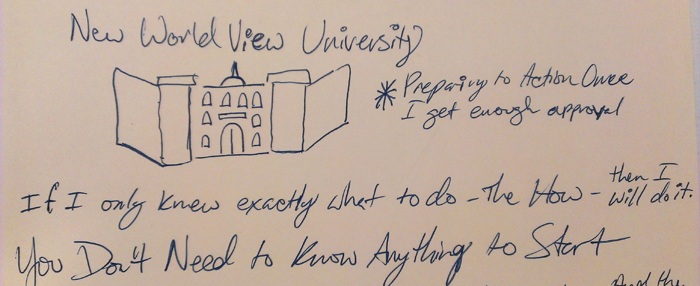 New World View University
* Preparing to Action Once
I get enough approval
If I only knew exactly what to do - The How - then I will do it.
You Don't Need to Know Anything to Start
And the